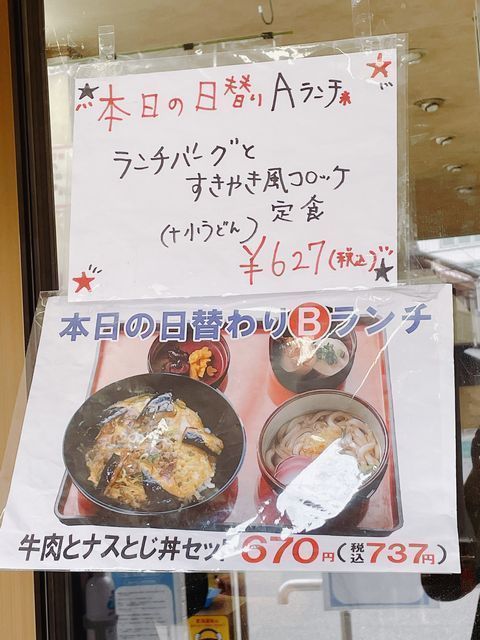 本日の日替り Aランチ
ランチバーグと
すきやき風コロッケ
定食
(+小うどん)
¥627(税込)
本日の日替わりBランチ
牛肉とナスとじ丼セット 670円(税込737円)